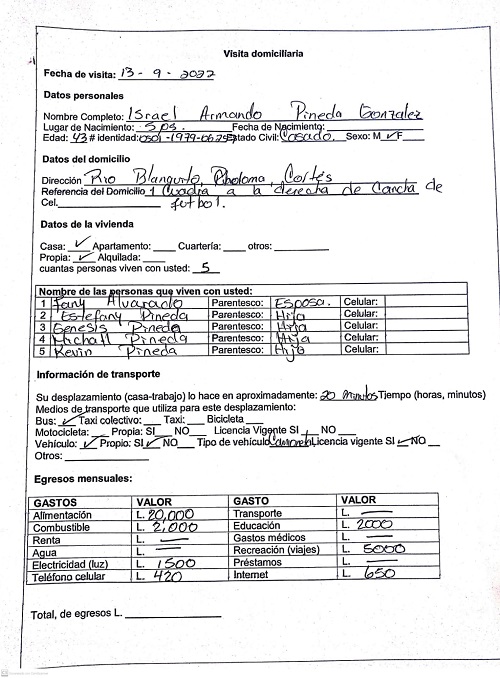 Visita domiciliaria
Fecha de visita: 13 - 9 - 2022
Datos personales
Nombre Completo: ISrael Armando Pineda Gonzalez
Lugar de Nacimiento: S.p.s. Fecha de Nacimiento:
Edad: 43 # identidad: Estado Civil: Casado. Sexo: M ✓ F
Datos del domicilio
Dirección Rio Blanquito, Choloma, Cortés
Referencia del Domicilio 1 Cuadra a la derecha de Cancha de
Cel. futbol.
Datos de la vivienda
Casa: ✓ Apartamento: Cuartería: otros:
Propia: ✓ Alquilada:
cuantas personas viven con usted: 5
Nombre de las personas que viven con usted:
1 Fany Alvarado Parentesco: Esposa. Celular:
2 Estefany Pineda Parentesco: Hija Celular:
3 Genesis Pineda Parentesco: Hija Celular:
4 Pineda Parentesco: Hija Celular:
5 Kevin Pineda Parentesco: Hijo Celular:
Información de transporte
Su desplazamiento (casa-trabajo) lo hace en aproximadamente: 20 Minutos Tiempo (horas, minutos)
Medios de transporte que utiliza para este desplazamiento:
Bus: ✓ Taxi colectivo: Taxi: Bicicleta
Motocicleta: Propia: SI NO Licencia Vigente SI NO
Vehículo: ✓ Propio: SI ✓ NO Tipo de vehículo Licencia vigente SI ✓ NO
Otros:
Egresos mensuales:
GASTOS VALOR GASTO VALOR
Alimentación L. 20,000 Transporte L. —
Combustible L. 2,000 Educación L. 2000
Renta L. — Gastos médicos L. —
Agua L. — Recreación (viajes) L. 5000
Electricidad (luz) L. 1500 Préstamos L. —
Teléfono celular L. 420 Internet L. 650
Total, de egresos L.